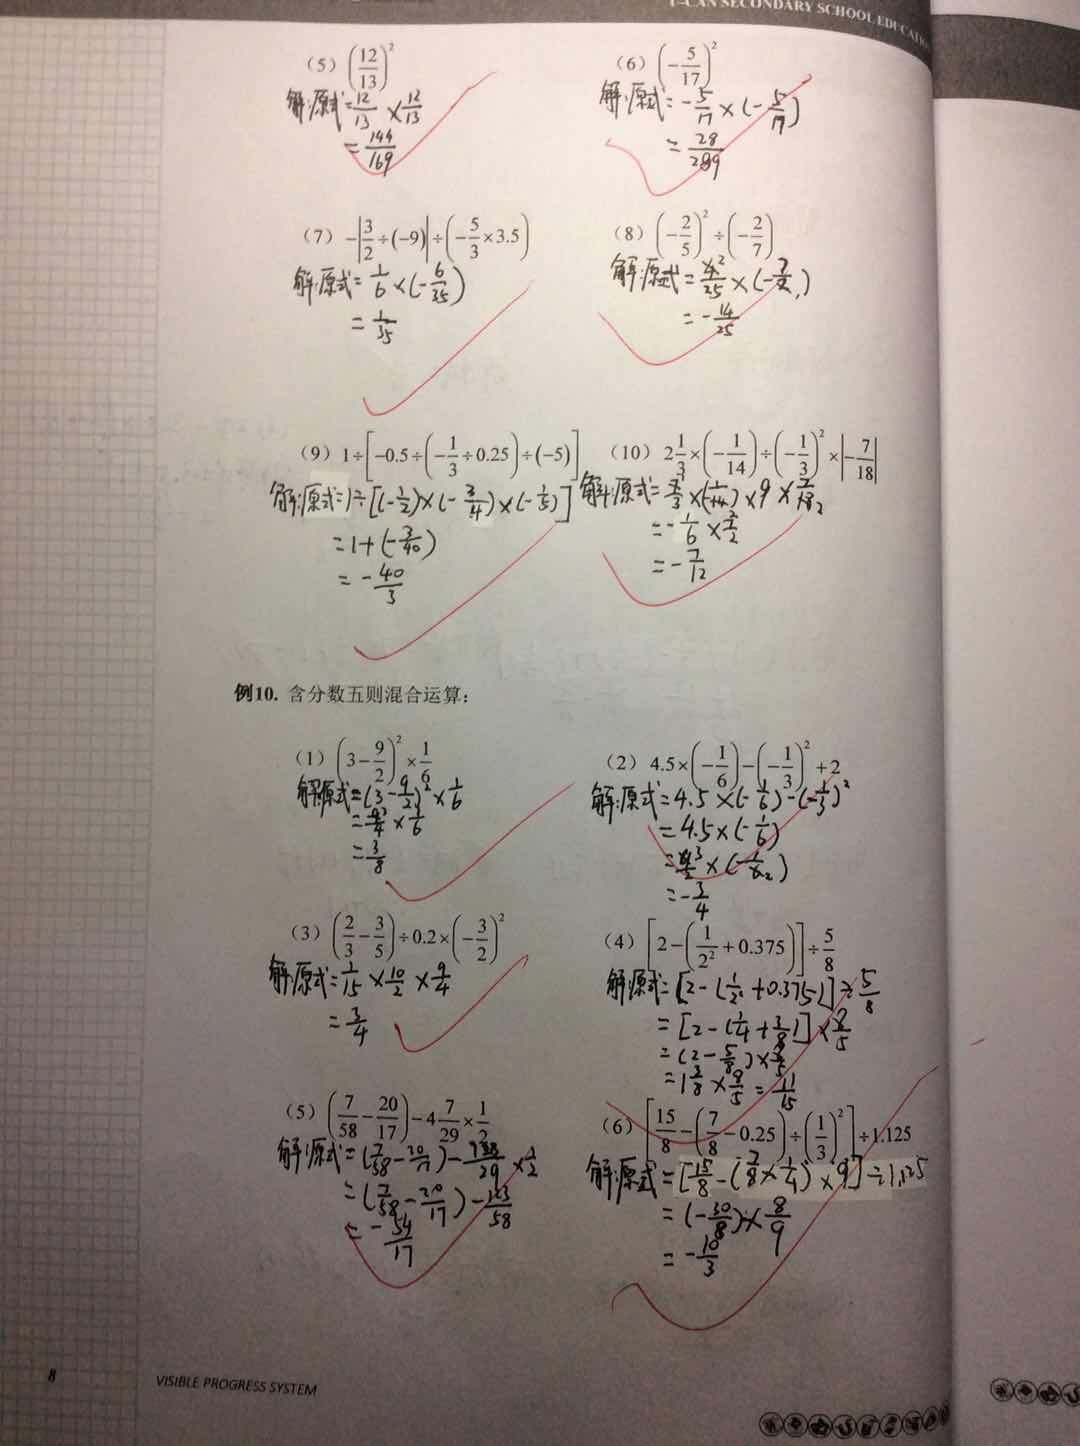 U-CAN SECONDARY SCHOOL EDUCATION
(5) (12/13)²
解:原式=12/13×12/13
=144/169
(6) (-5/17)²
解:原式=-5/17×(-5/17)
(7) -|3/2÷(-9)|÷(-5/3×3.5)
解:原式=1/6×(-6/35)
=1/35
(8) (-2/5)²÷(-2/7)
解:原式=4²/25×(-7/2₁)
=-14/25
(9) 1÷[-0.5÷(-1/3÷0.25)÷(-5)]
解:原式=1÷[(-1/2)×(-3/4)×(-1/5)]
=1÷(-3/40)
=-40/3
(10) 2 1/3×(-1/14)÷(-1/3)²×|-7/18|
解:原式=7/3×(-1/14)×9×7/18₂
=-1/6×7/2
=-7/12
例10. 含分数五则混合运算:
(1) (3-9/2)²×1/6
解:原式=(3-9/2)²×1/6
=9³/4×1/6
=3/8
(2) 4.5×(-1/6)-(-1/3)²+2
解:原式=4.5×(-1/6)-(-1/3)²
=4.5×(-1/6)
=9³/2×(-1/6₂)
=-3/4
(3) (2/3-3/5)÷0.2×(-3/2)²
解:原式=1/15×10/2×9/4
=3/4
(4) [2-(1/2²+0.375)]÷5/8
解:原式=[2-(1/2²+0.375)]÷5/8
=[2-(1/4+3/8)]×8/5
=(2-5/8)×8/5
=1 3/8×8/5=11/15
(5) (7/58-20/17)-4 7/29×1/2
解:原式=(7/58-20/17)-123/29×1/2
=(7/58-20/17)-123/58
=-54/17
(6) [15/8-(7/8-0.25)÷(1/3)²]÷1.125
解:原式=[15/8-(7/8×1/4)×9]÷1.125
=(-30/8)×8/9
=-10/3
8
VISIBLE PROGRESS SYSTEM